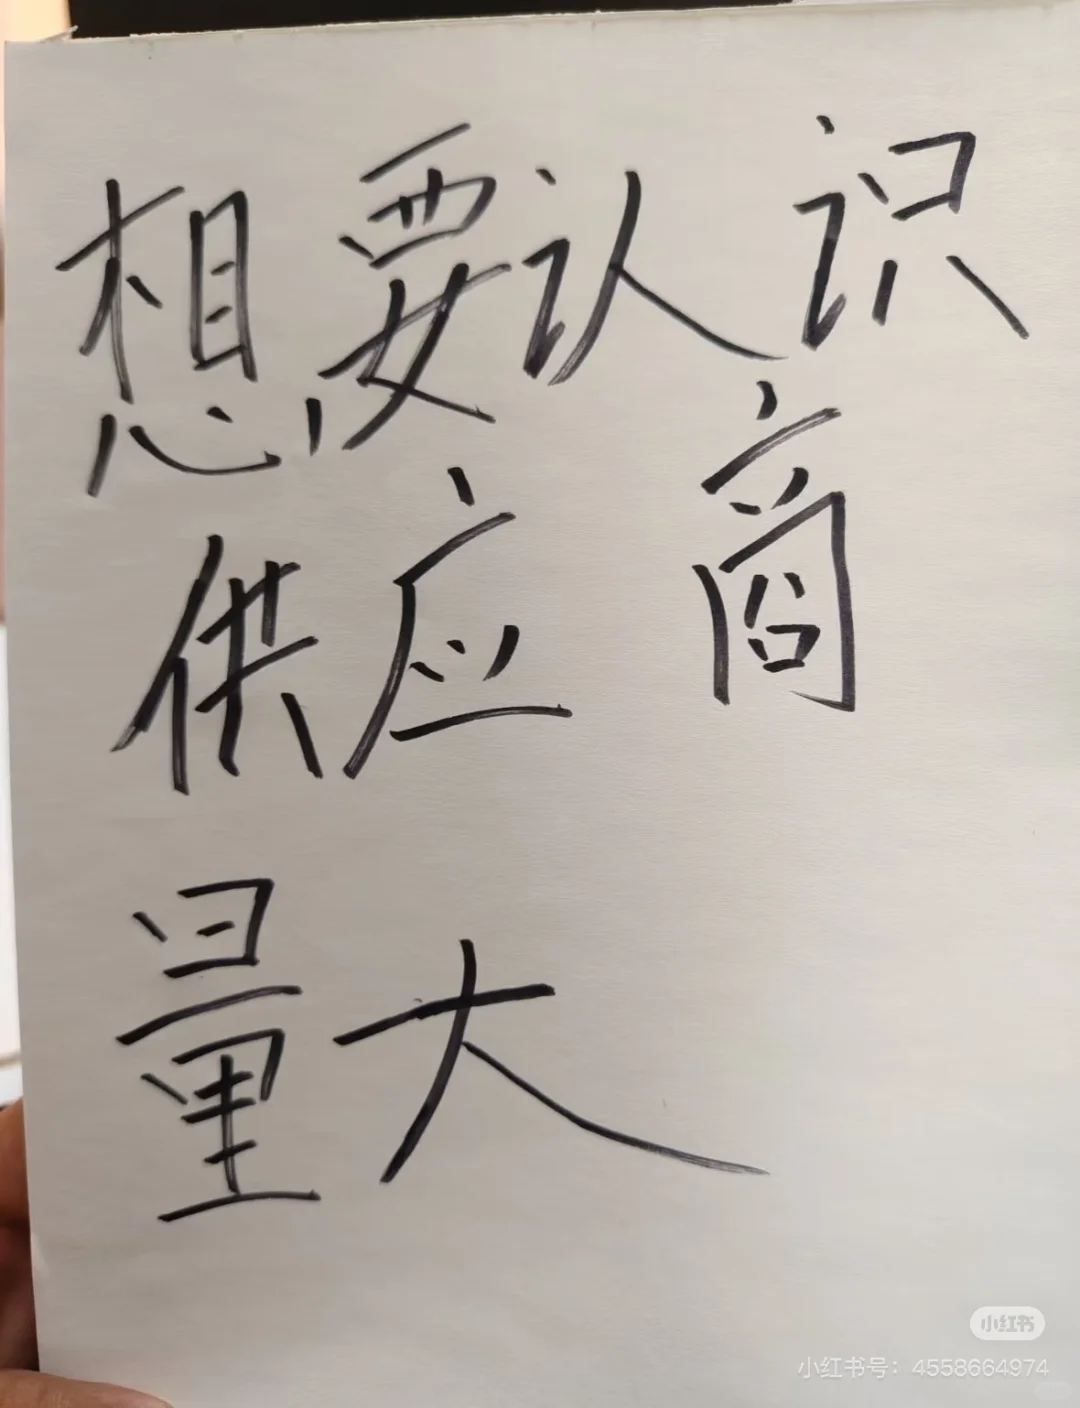 想要认识
供应商
量大
小红书
小红书号：4558664974